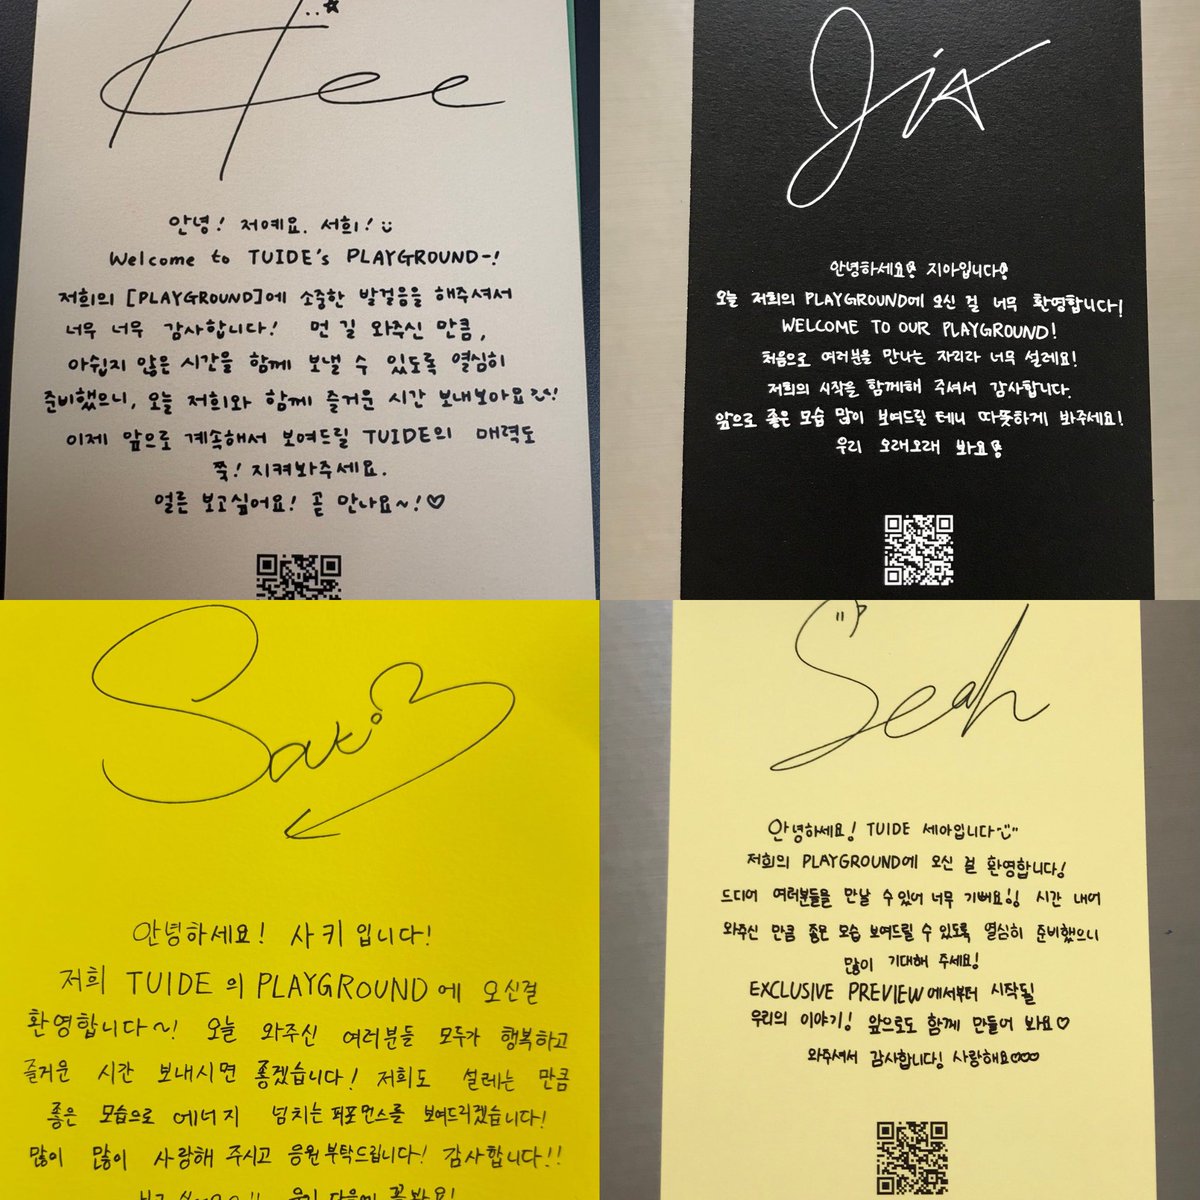 Hee
안녕! 저예요. 서희!
Welcome to TUIDE's PLAYGROUND~!
저희의 [PLAYGROUND]에 소중한 발걸음을 해주셔서
너무 너무 감사합니다! 먼 길 와주신 만큼,
아쉽지 않은 시간을 함께 보낼 수 있도록 열심히
준비했으니, 오늘 저희와 함께 즐거운 시간 보내보아요
이제 앞으로 계속해서 보여드릴 TUIDE의 매력도
쭉! 지켜봐주세요.
얼른 보고싶어요! 곧 만나요~!♡
JiA
안녕하세요! 지아입니다!
오늘 저희의 PLAYGROUND에 오신 걸 너무 환영합니다!
WELCOME TO OUR PLAYGROUND!
처음으로 여러분을 만나는 자리라 너무 설레요!
저희의 시작을 함께해 주셔서 감사합니다.
앞으로 좋은 모습 많이 보여드릴 테니 따뜻하게 봐주세요!
우리 오래오래 봐요!
Saki
안녕하세요! 사키입니다!
저희 TUIDE의 PLAYGROUND에 오신걸
환영합니다~! 오늘 와주신 여러분들 모두가 행복하고
즐거운 시간 보내시면 좋겠습니다! 저희도 설레는 만큼
좋은 모습으로 에너지 넘치는 퍼포먼스를 보여드리겠습니다!
많이 많이 사랑해 주시고 응원부탁드립니다! 감사합니다!!
우리 다음에 꼭봐요!
Seah
안녕하세요! TUIDE 세아입니다
저희의 PLAYGROUND에 오신 걸 환영합니다!
드디어 여러분들을 만날 수 있어 너무 기뻐요!! 시간 내어
와주신 만큼 좋은 모습 보여드릴 수 있도록 열심히 준비했으니
많이 기대해 주세요!
EXCLUSIVE PREVIEW에서부터 시작될
우리의 이야기! 앞으로도 함께 만들어 봐요♡
와주셔서 감사합니다! 사랑해요♡♡♡